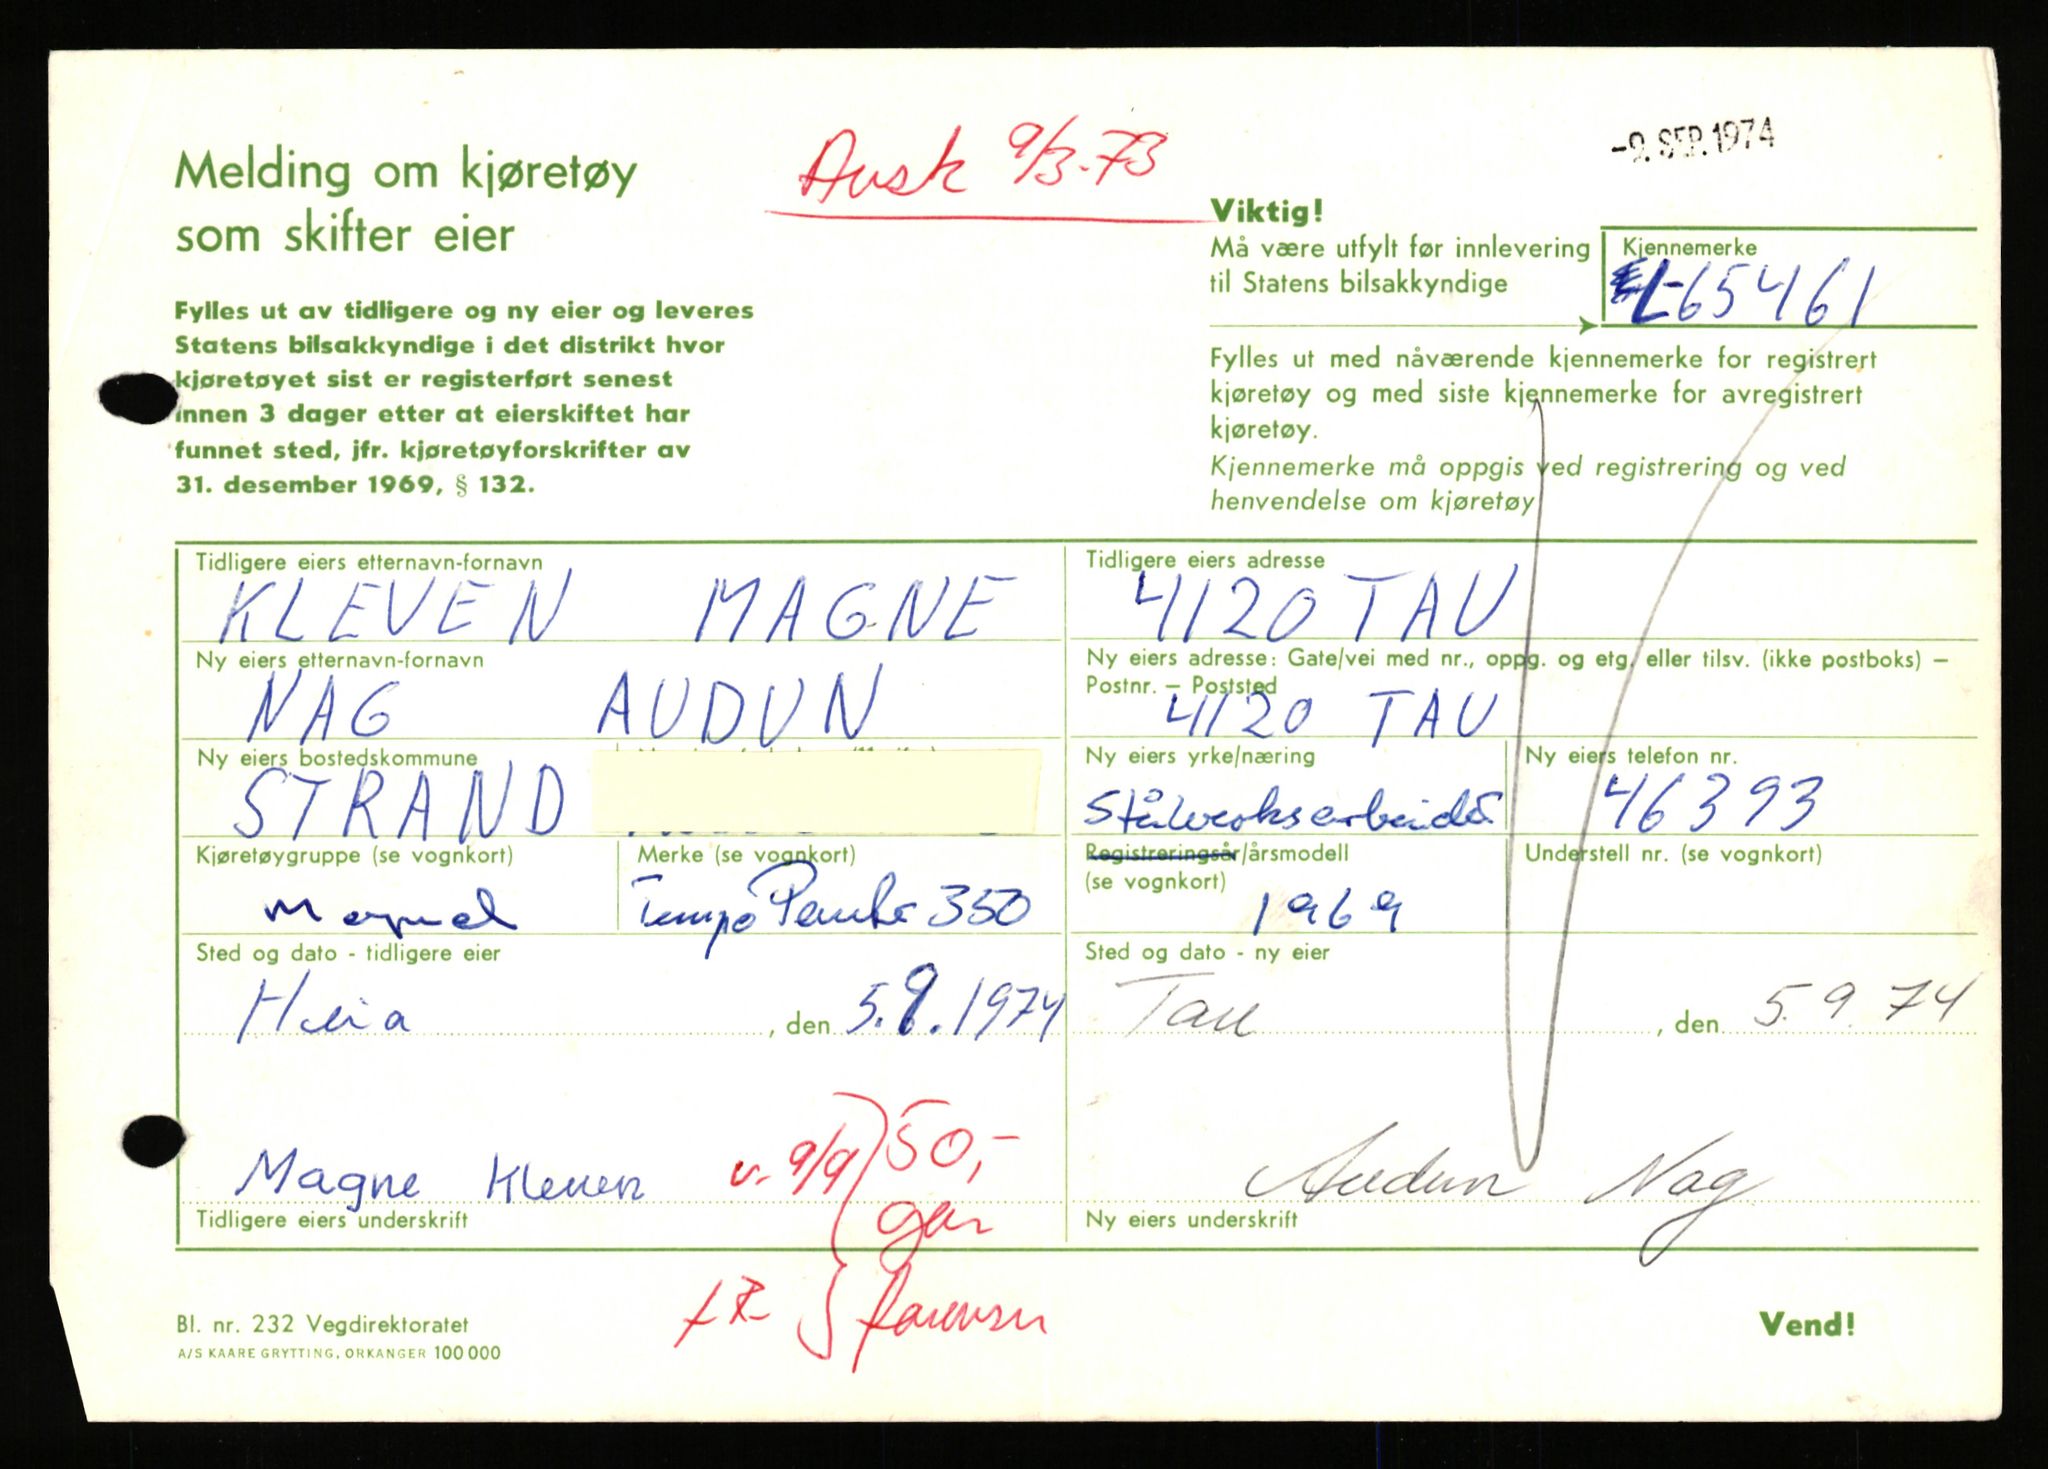 Melding om kjøretøy
som skifter eier
Avsk 9/3-73
-9. SEP. 1974
Fylles ut av tidligere og ny eier og leveres
Statens bilsakkyndige i det distrikt hvor
kjøretøyet sist er registerført senest
innen 3 dager etter at eierskiftet har
funnet sted, jfr. kjøretøyforskrifter av
31. desember 1969, § 132.
Viktig!
Må være utfylt før innlevering
til Statens bilsakkyndige
Kjennemerke
L-65461
Fylles ut med nåværende kjennemerke for registrert
kjøretøy og med siste kjennemerke for avregistrert
kjøretøy.
Kjennemerke må oppgis ved registrering og ved
henvendelse om kjøretøy
Tidligere eiers etternavn-fornavn
KLEVEN MAGNE
Tidligere eiers adresse
4120 TAU
Ny eiers etternavn-fornavn
NAG AUDUN
Ny eiers adresse: Gate/vei med nr., oppg. og etg. eller tilsv. (ikke postboks) –
Postnr. – Poststed
4120 TAU
Ny eiers bostedskommune
STRAND
Ny eiers yrke/næring
Stålverksarbeider
Ny eiers telefon nr.
46393
Kjøretøygruppe (se vognkort)
Moped
Merke (se vognkort)
Tempo Panter 350
Registreringsår/årsmodell
(se vognkort)
1969
Understell nr. (se vognkort)
Sted og dato - tidligere eier
Heia, den 5.9.1974
Sted og dato - ny eier
Tau, den 5.9.74
Magne Kleven
v. 9/9
50,-
gen
Tidligere eiers underskrift
Audun Nag
Ny eiers underskrift
Bl. nr. 232 Vegdirektoratet
A/S KAARE GRYTTING, ORKANGER 100 000
Vend!